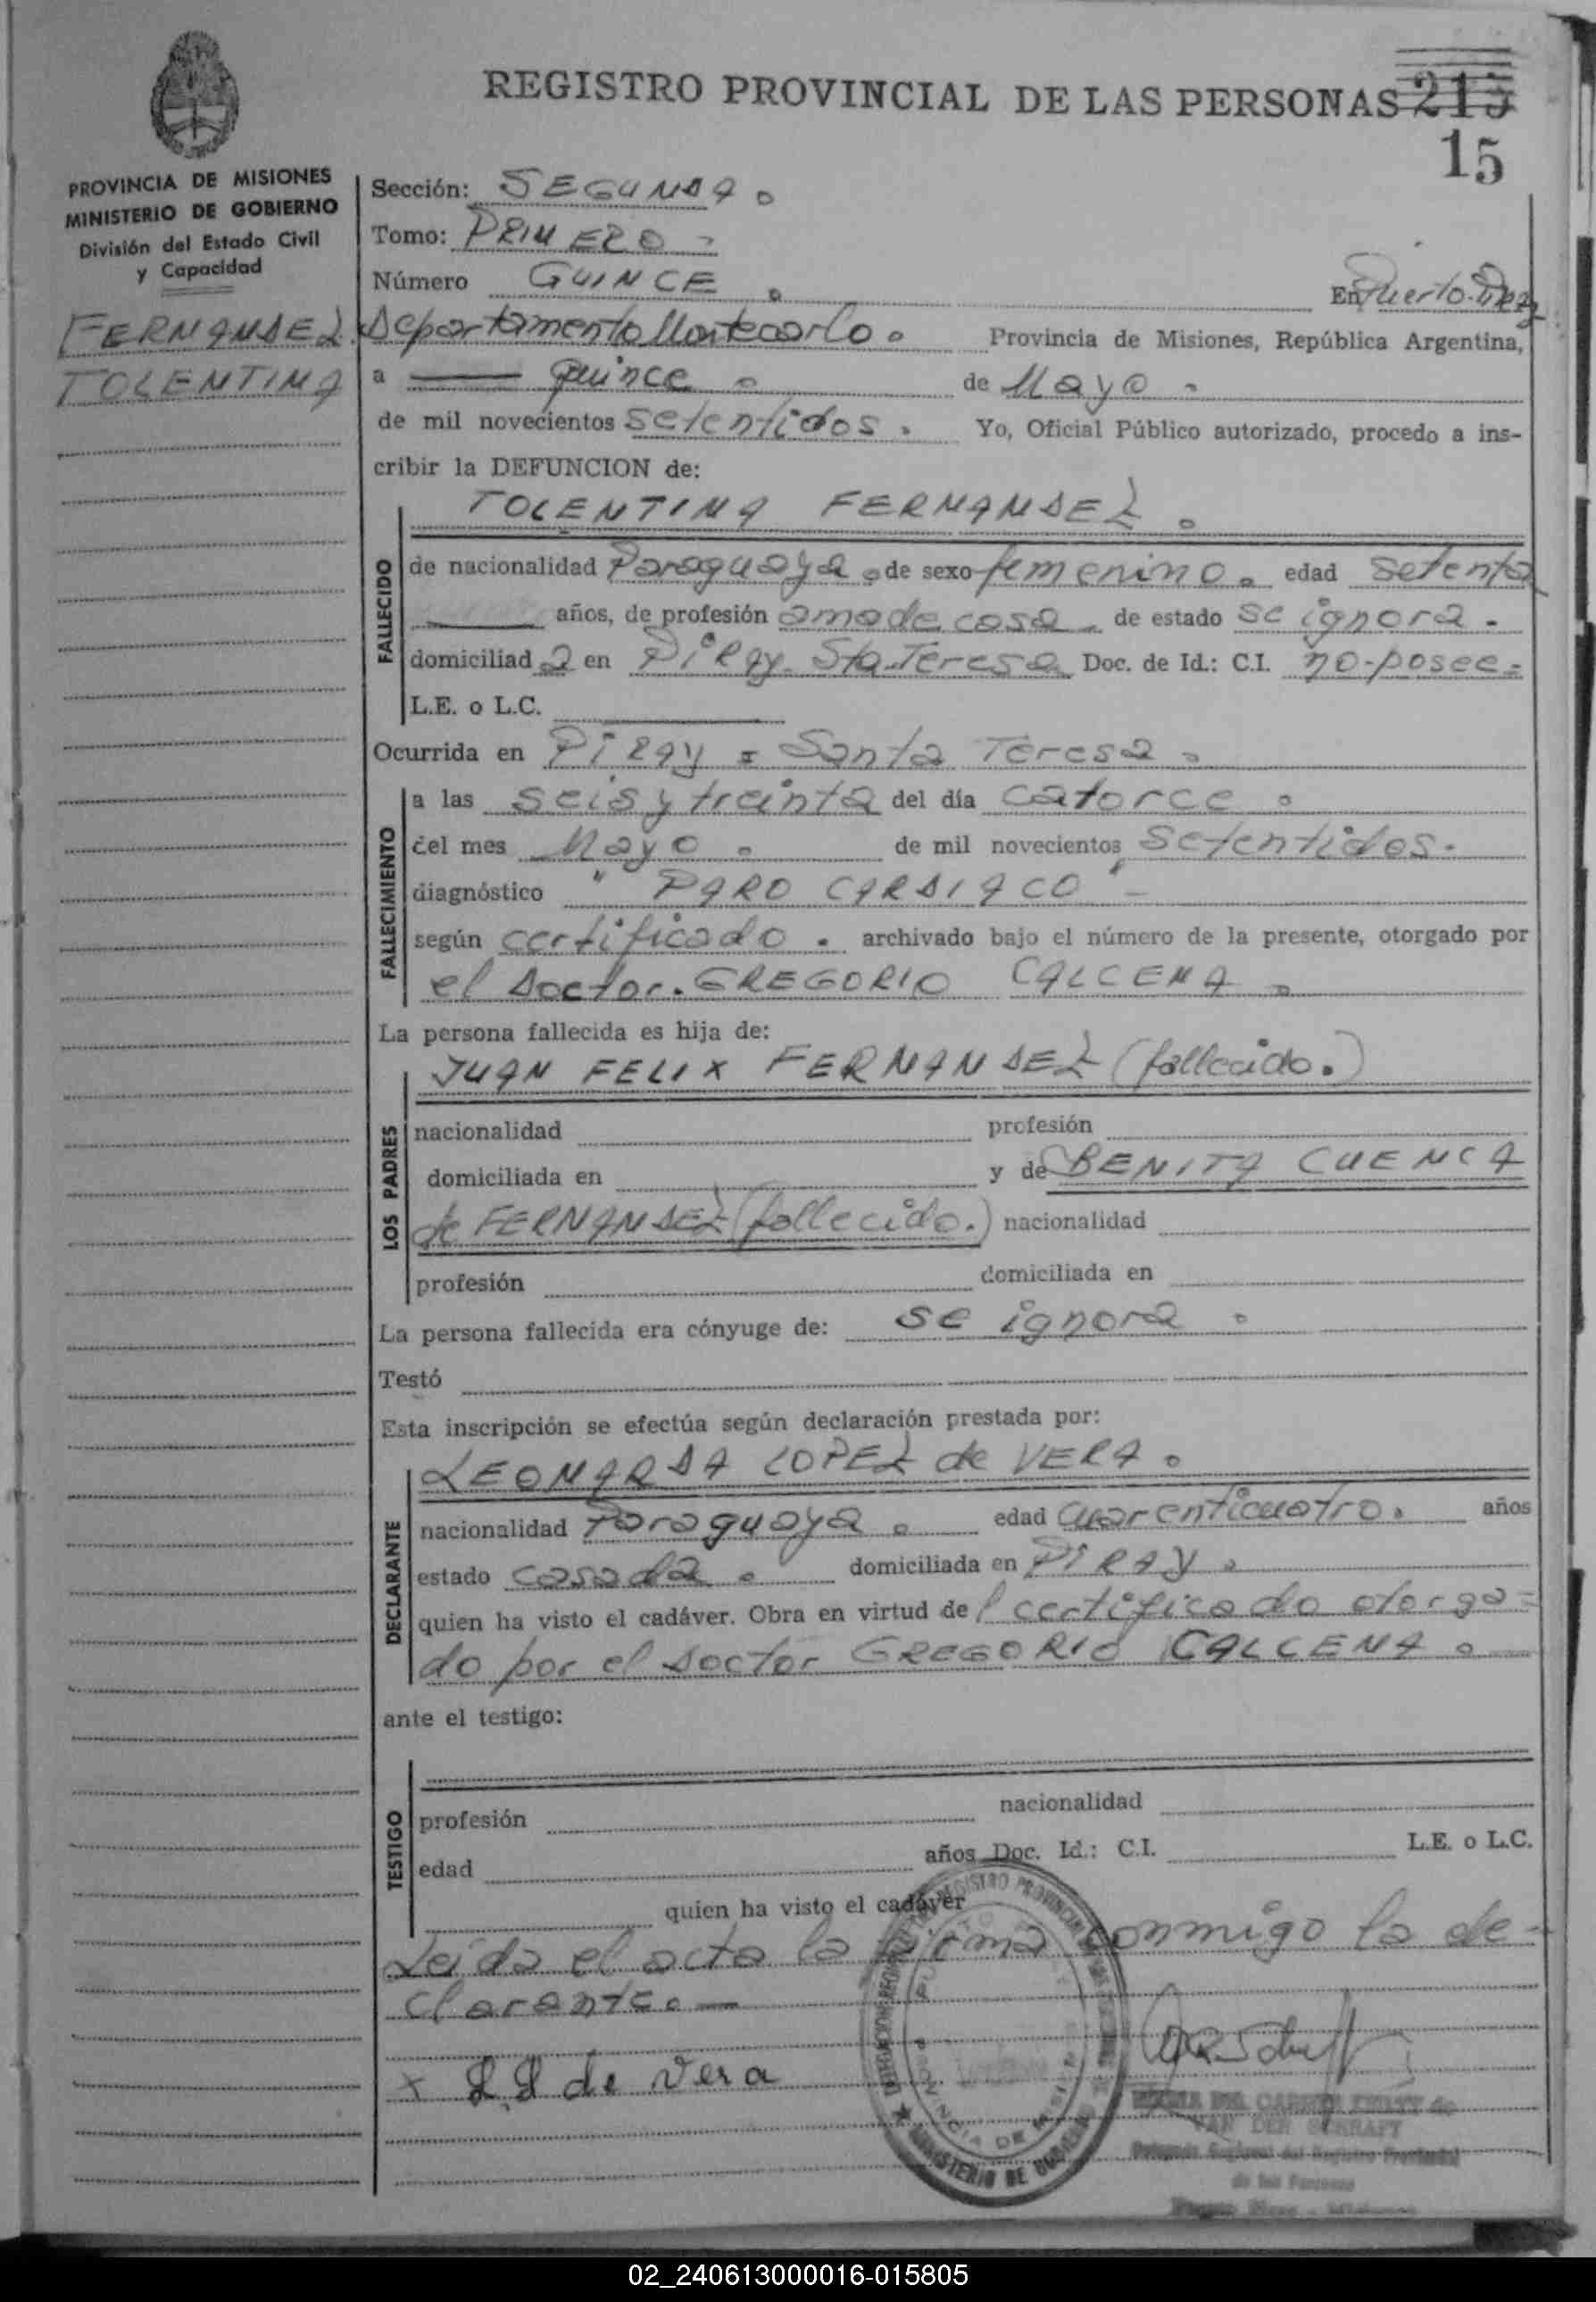 REGISTRO PROVINCIAL DE LAS PERSONAS 215
15
PROVINCIA DE MISIONES
MINISTERIO DE GOBIERNO
División del Estado Civil
y Capacidad
FERNANDEZ
TOLENTINA
Sección: SEGUNDA.
Tomo: PRIMERO -
Número QUINCE. En Puerto Piray
Departamento Montecarlo. Provincia de Misiones, República Argentina,
a quince. de Mayo.
de mil novecientos setentidos. Yo, Oficial Público autorizado, procedo a ins-
cribir la DEFUNCION de:
TOLENTINA FERNANDEZ.
FALLECIDO
de nacionalidad Paraguaya. de sexo femenino. edad setenta
años, de profesión ama de casa. de estado se ignora.
domiciliad a en Piray Sta. Teresa Doc. de Id.: C.I. no-posee=
L.E. o L.C.
Ocurrida en Piray = Santa Teresa.
FALLECIMIENTO
a las seis y treinta del día catorce.
del mes Mayo. de mil novecientos setentidos.
diagnóstico " PARO CARDIACO" -
según certificado. archivado bajo el número de la presente, otorgado por
el Doctor. GREGORIO CALCENA.
La persona fallecida es hija de:
JUAN FELIX FERNANDEZ (fallecido.)
LOS PADRES
nacionalidad profesión
domiciliada en y de BENITA CUENCA
de FERNANDEZ (fallecido.) nacionalidad
profesión domiciliada en
La persona fallecida era cónyuge de: se ignora.
Testó
Esta inscripción se efectúa según declaración prestada por:
LEONARDA LOPEZ de VERA.
DECLARANTE
nacionalidad Paraguaya. edad cuarenticuatro. años
estado casada. domiciliada en PIRAY.
quien ha visto el cadáver. Obra en virtud del certificado otorga=
do por el Doctor GREGORIO CALCENA.
ante el testigo:
TESTIGO
profesión nacionalidad
edad años Doc. Id.: C.I. L.E. o L.C.
quien ha visto el cadáver
Leida el acta la firma conmigo la de-
clarante. -
x L L de Vera
REGISTRO PROVINCIAL
PROVINCIA DE MISIONES
MINISTERIO DE GOBIERNO
VAN DER
Regional del Registro Provincial
de las Personas
02_240613000016-015805